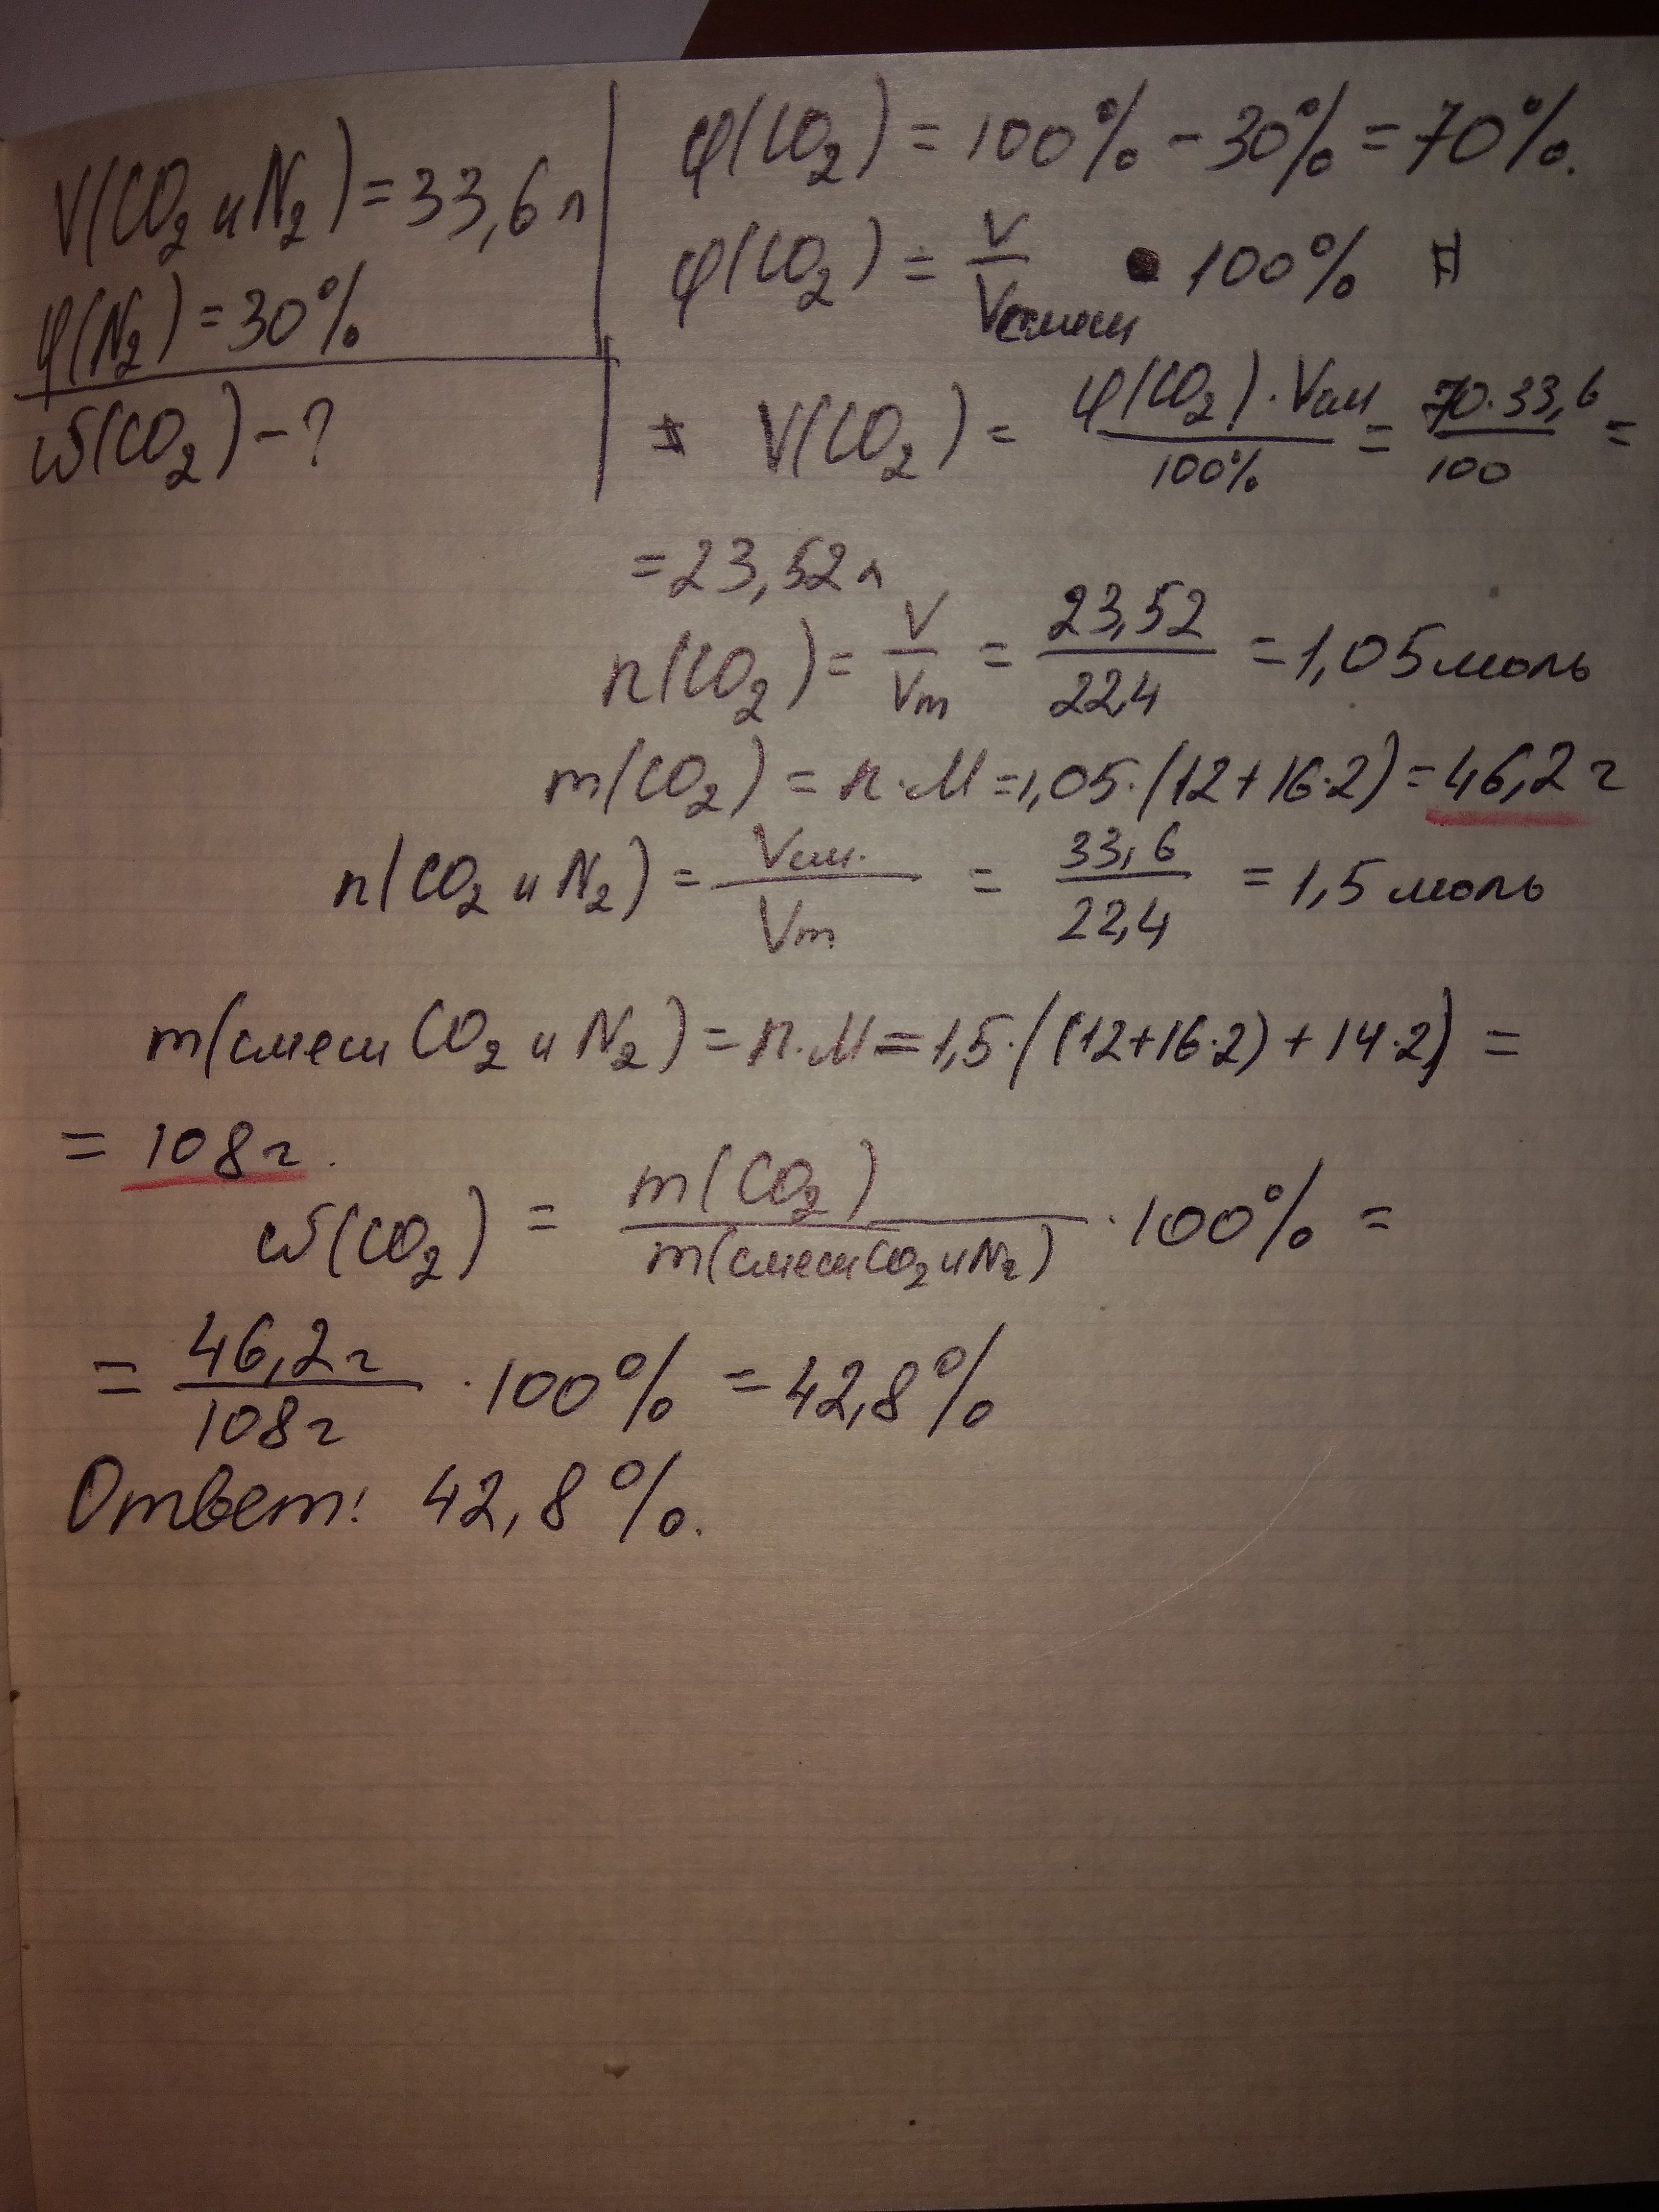 V(CO₂ и N₂) = 33,6 л
φ(N₂) = 30%
ω(CO₂) - ?
φ(CO₂) = 100% - 30% = 70%.
φ(CO₂) = V/Vсмеси · 100%
V(CO₂) = φ(CO₂) · Vсм / 100% = 70 · 33,6 / 100 =
= 23,52 л
n(CO₂) = V/Vm = 23,52/22,4 = 1,05 моль
m(CO₂) = n · M = 1,05 · (12 + 16·2) = 46,2 г
n(CO₂ и N₂) = Vсм. / Vm = 33,6 / 22,4 = 1,5 моль
m(смеси CO₂ и N₂) = n · M = 1,5 · ((12+16·2) + 14·2) =
= 108 г.
ω(CO₂) = m(CO₂) / m(смеси CO₂ и N₂) · 100% =
= 46,2 г / 108 г · 100% = 42,8%
Ответ: 42,8%.